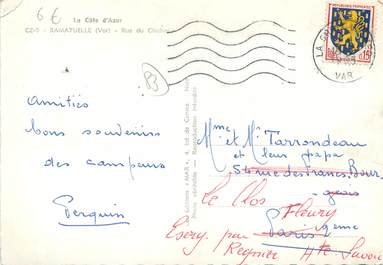 6€
La Côte d'Azur
CZ-9 - RAMATUELLE (Var) - Rue du
83
LA
VAR
REPUBLIQUE FRANÇAISE
0,15
Amitiés
bons souvenirs
des campeurs
Perquin
Editions « MAR », 4, bd de Cimiez, Nice
Reproduction interdite
Mme et Mr Tarrondeau
et leur papa
54 rue des Francs Bour
geois
Paris 4eme
le Clos Fleury
Esery par
Reignier Hte Savoie